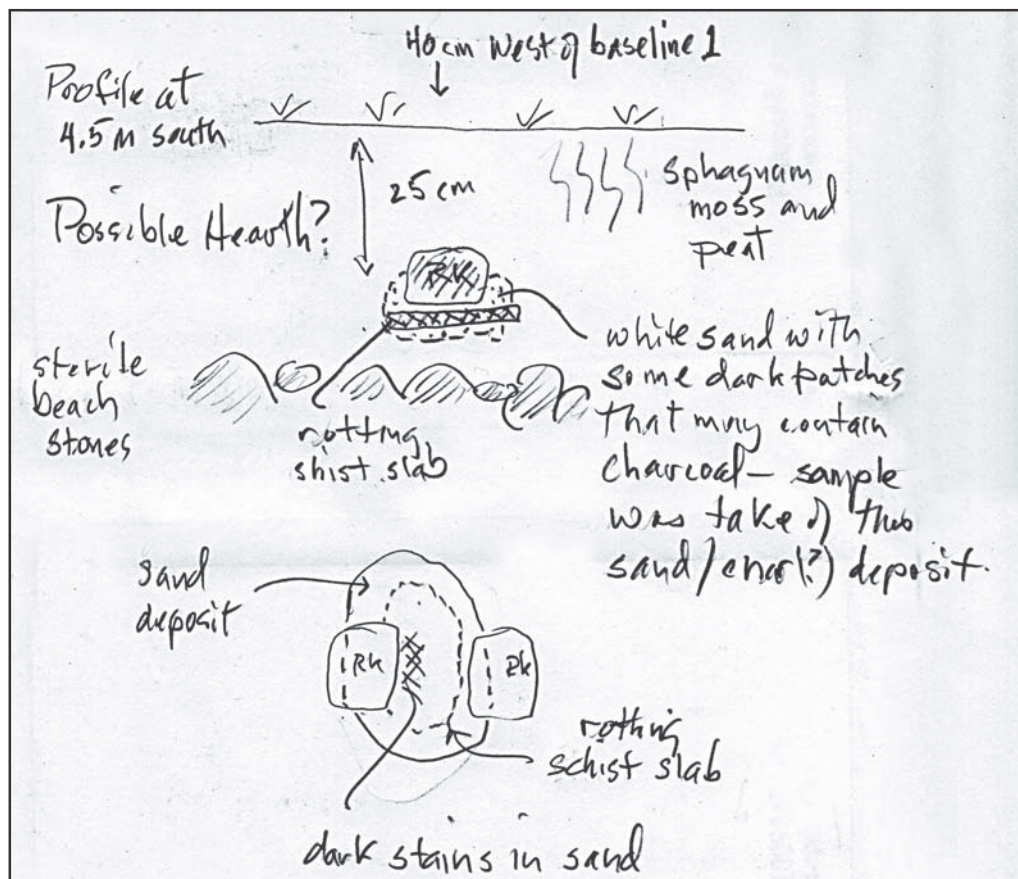 40cm West of baseline 1
Profile at
4.5 m south
25 cm
Possible Hearth?
sphagnum
moss and
peat
RK
sterile
beach
stones
rotting
shist slab
white sand with
some dark patches
that may contain
charcoal – sample
was take of this
sand/char(?) deposit.
sand
deposit
Rk
Rk
rotting
schist slab
dark stains in sand